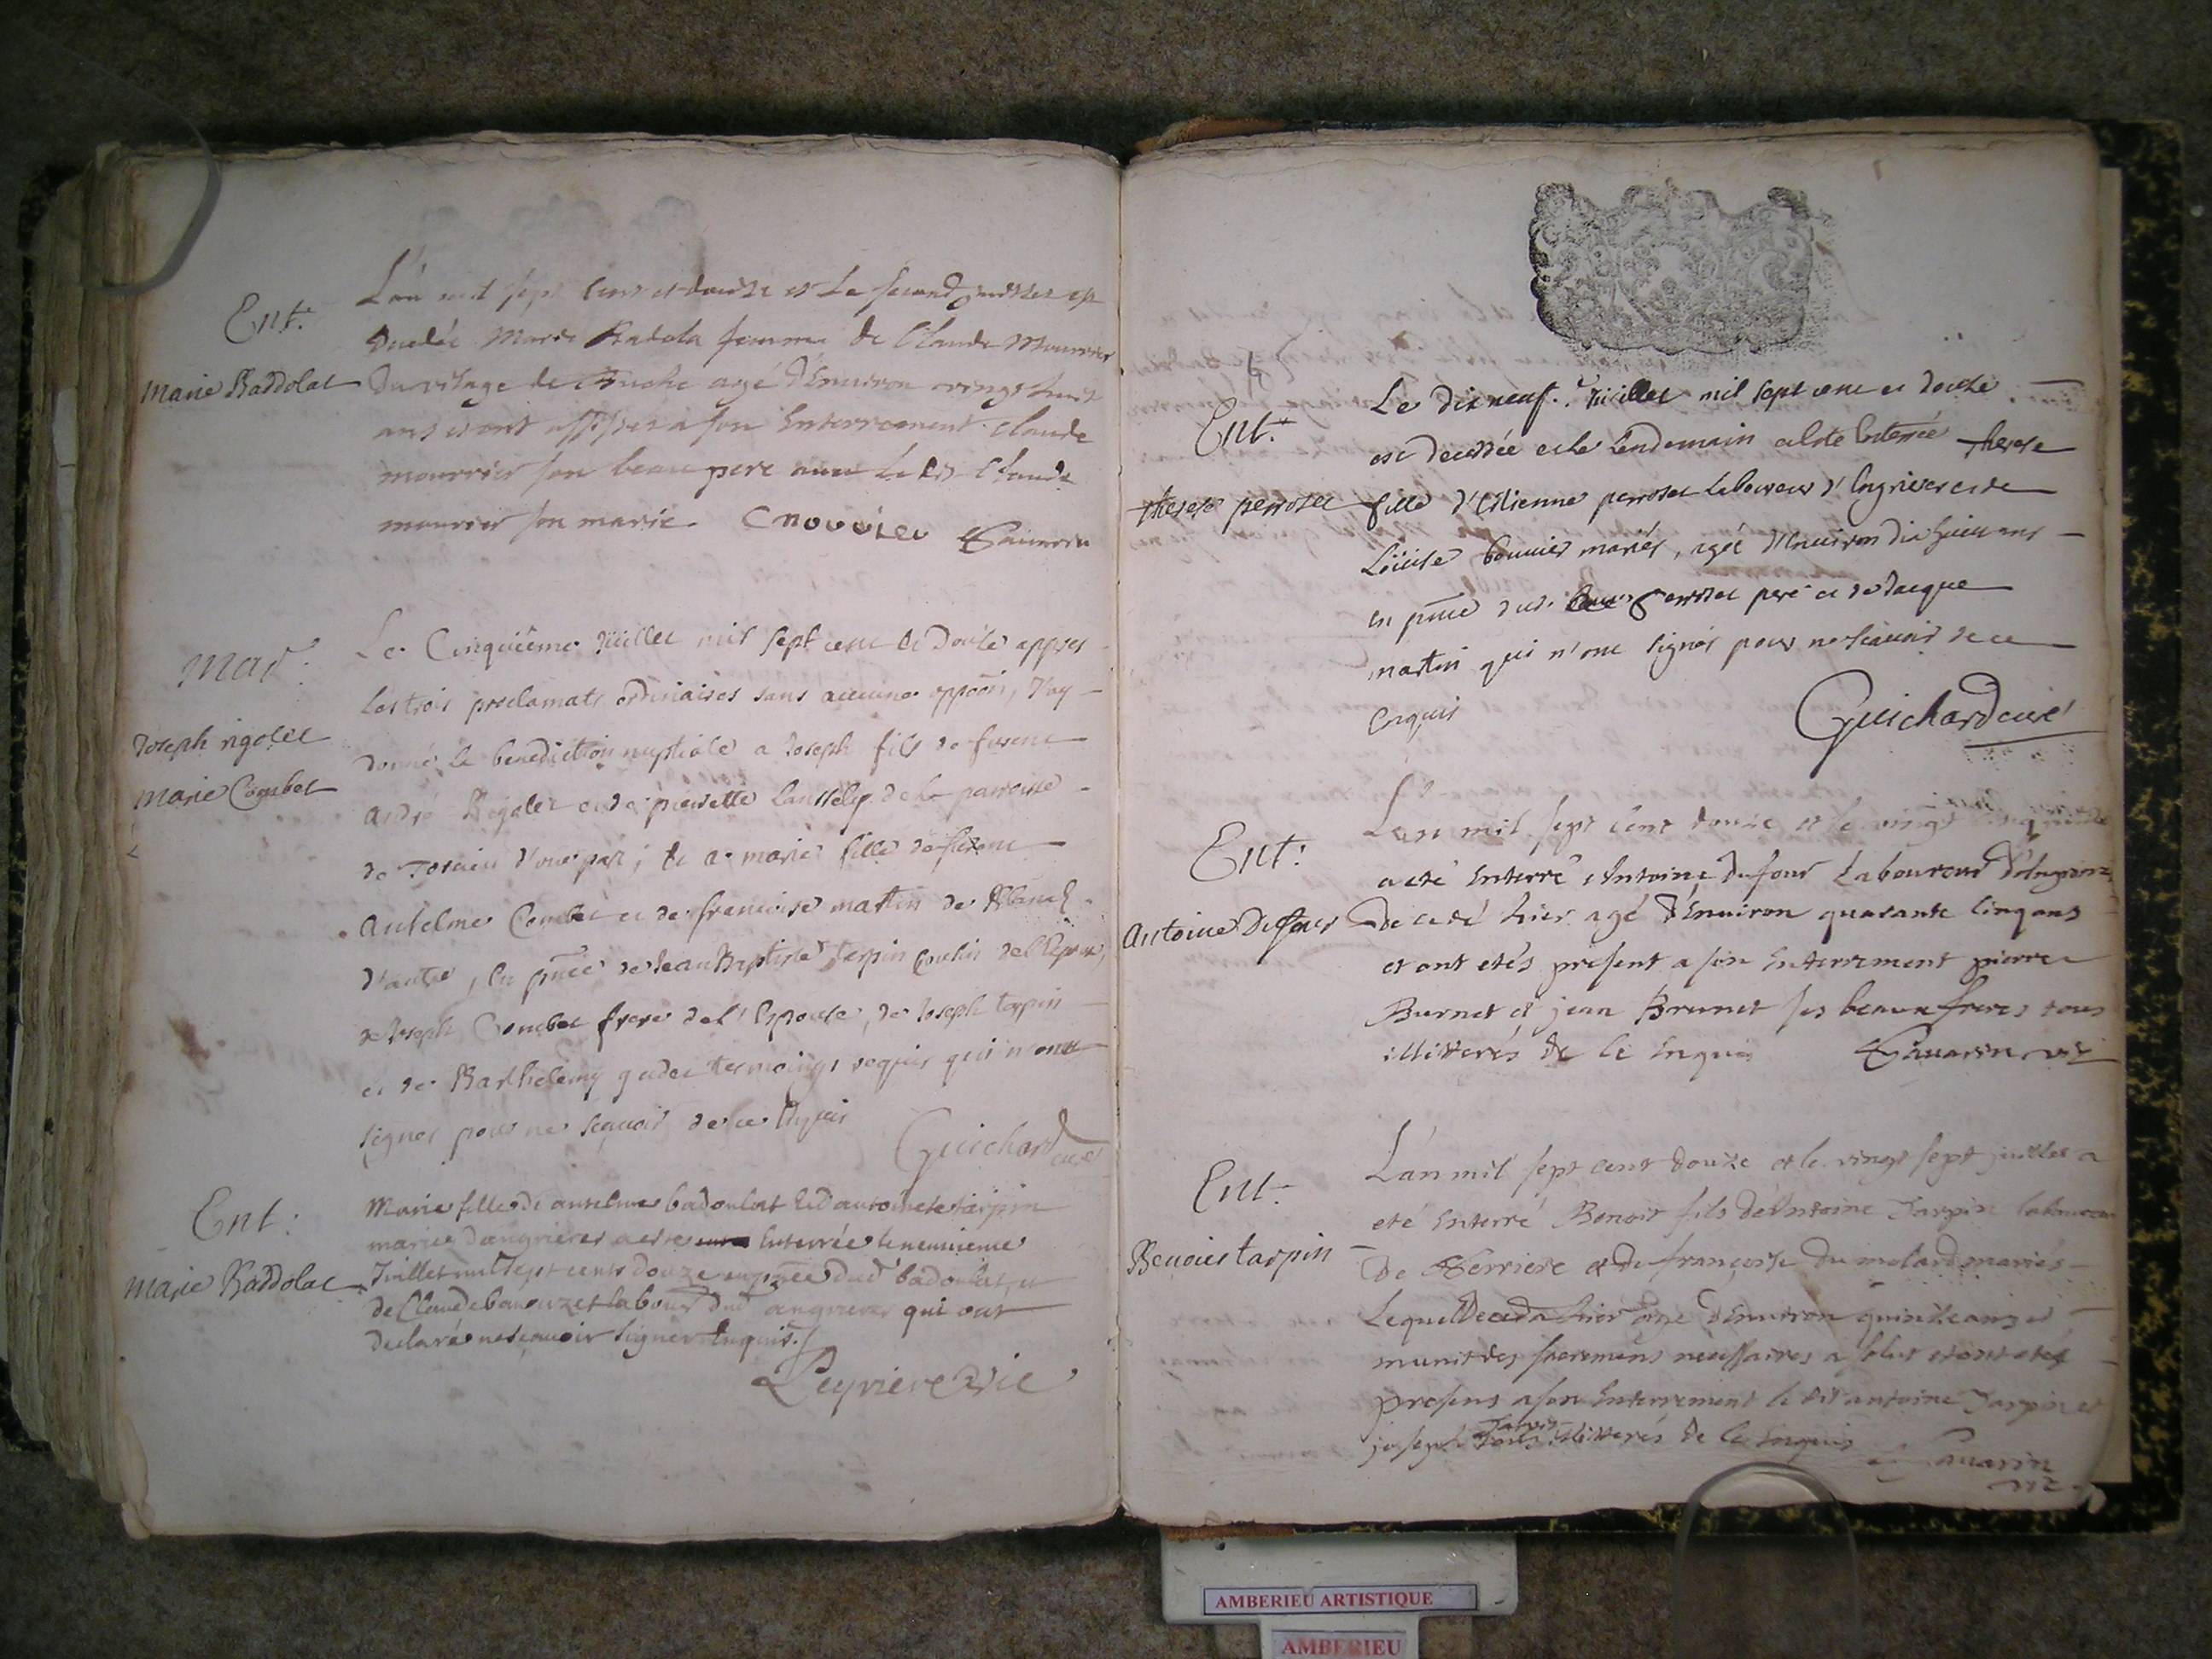 Ent.
Marie Baddolat
L'an mil sept cent et douze et le second juillet est
decedée Marie Badola femme de Claude Mourrier
du vilage de agé d'Environ vingt huit
ans et ont assistez a son Enterrement Claude
mourrier son beau pere le dit Claude
mourrier son marie
Mar.
Joseph rigolet
Marie Combet
Le Cinquième Juillet mil sept cent et Douze apprez
Les trois proclamats ordinaires sans aucune opposõn, J'ay
donné la benediction nuptiale a Joseph fils de furent
André Rigolet et de pierrette de la parroisse
de Torcieu d'une part; et a marie fille de furent
Antelme Combet et de francoise martin de
d'autre, En pñce de Jean Baptiste Tarpin Cousin de l'Epoux,
de Joseph Combet frere de l' Epouse, de Joseph tarpin
et de Barthelemy tesmoings requis qui n'ont
signez pour ne sçavoir de ce Enquis
Guichard curé
Ent:
Marie Baddolac
Marie fille de antelme badoulat et d'antoinete tarpin
mariez d'angrieres a esté Enterrée le neuvieme
Juillet mil sept cents douze en pñce dud badoulat, et
de Claude labour dud angrieres qui ont
declaré ne sçavoir signer Enquis./
Leyriere vic
Ent.
therese perroset
Le dix neuf. Juillet mil sept cent et douze
est decedée et le lendemain a esté Enterrée therese
fille d'Estienne perroset laboureur d'Engrieres et de
Loüise bouvier mariés, agée d'Environ dix huit ans
en pñce dud. perroset pere et de Jacque
martin qui n'ont signés pour ne sçavoir de ce
Enquis
Guichard curé
Ent:
Antoine Dufour
L'an mil sept cent douze et le vingt
a eté Enterré Antoine Dufour Laboureur
decedé hier agé d'Environ quarante cinq ans
et ont etés present a son Enterrement pierre
Burnet et jean Brunet ses beaux freres tous
illitterés de ce Enquis Gavarin vic
Ent.
Benoict tarpin
L'an mil sept cent douze et le vingt sept juillet a
eté Enterré Benoit fils d'Antoine Tarpin laboureur
de et de françoise du molard mariés
Lequel deceda hier agé d'Environ quinze ans et
munit des sacremens necessaires a salut et ont etés
presens a son Enterrement le dit antoine Tarpin et
joseph Tarpin tous illitterés de ce Enquis Gavarin
vic
AMBERIEU ARTISTIQUE
AMBERIEU